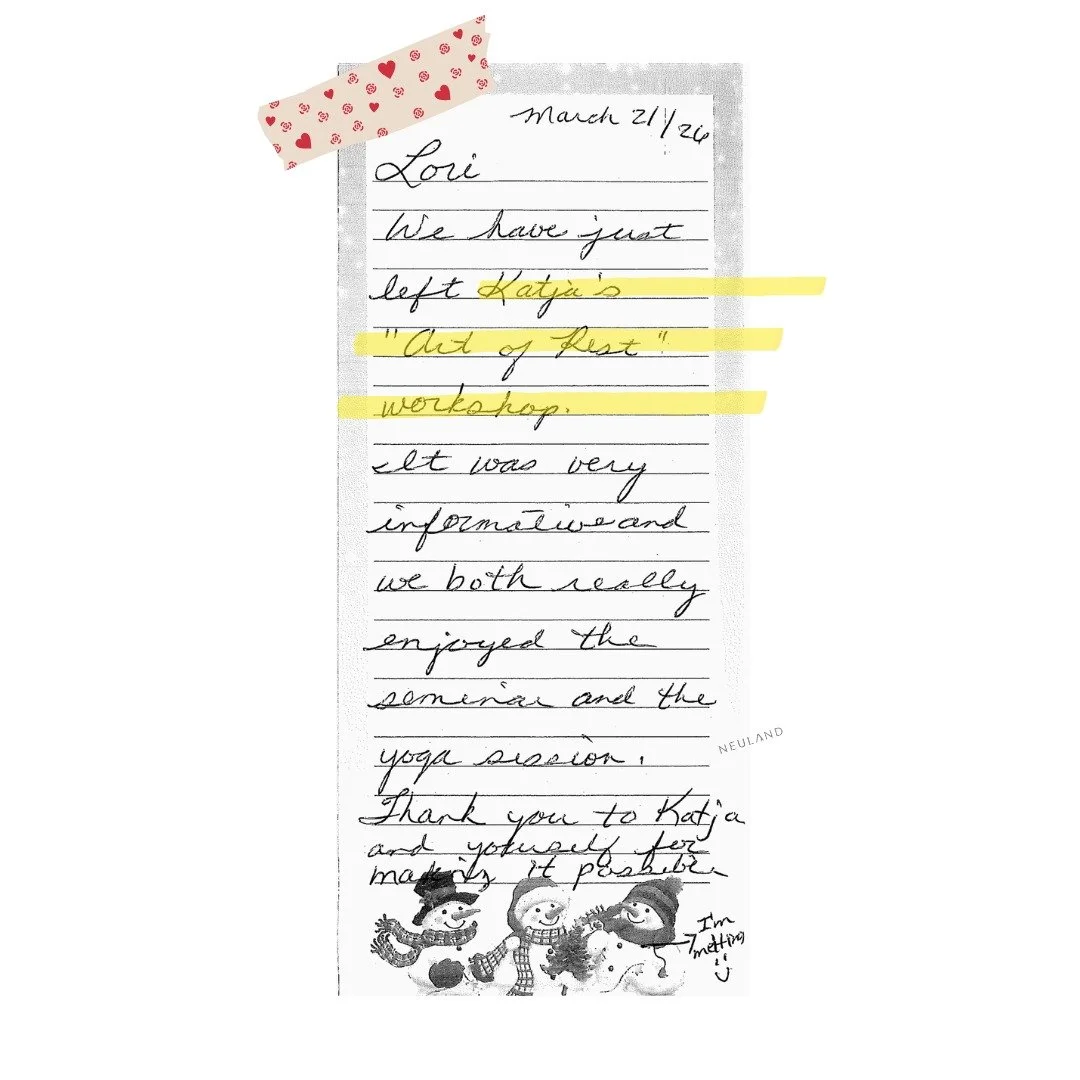 March 21/26
Lori
We have just
left Katja's
"Art of Rest"
workshop.
It was very
informative and
we both really
enjoyed the
seminar and the
yoga session.
NEULAND
Thank you to Katja
and yourself for
making it possible
I'm
melting